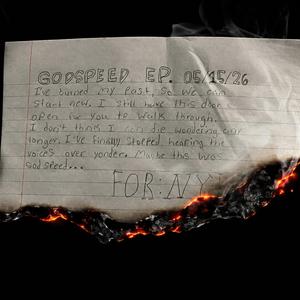 GODSPEED EP. 05/15/26
I've burned my past, so we can
start new. I still have this door
open for you to walk through.
I don't think I can die wondering any
longer. I've finally stopped hearing the
voices over yonder. Maybe this was
Godspeed...
FOR: NY